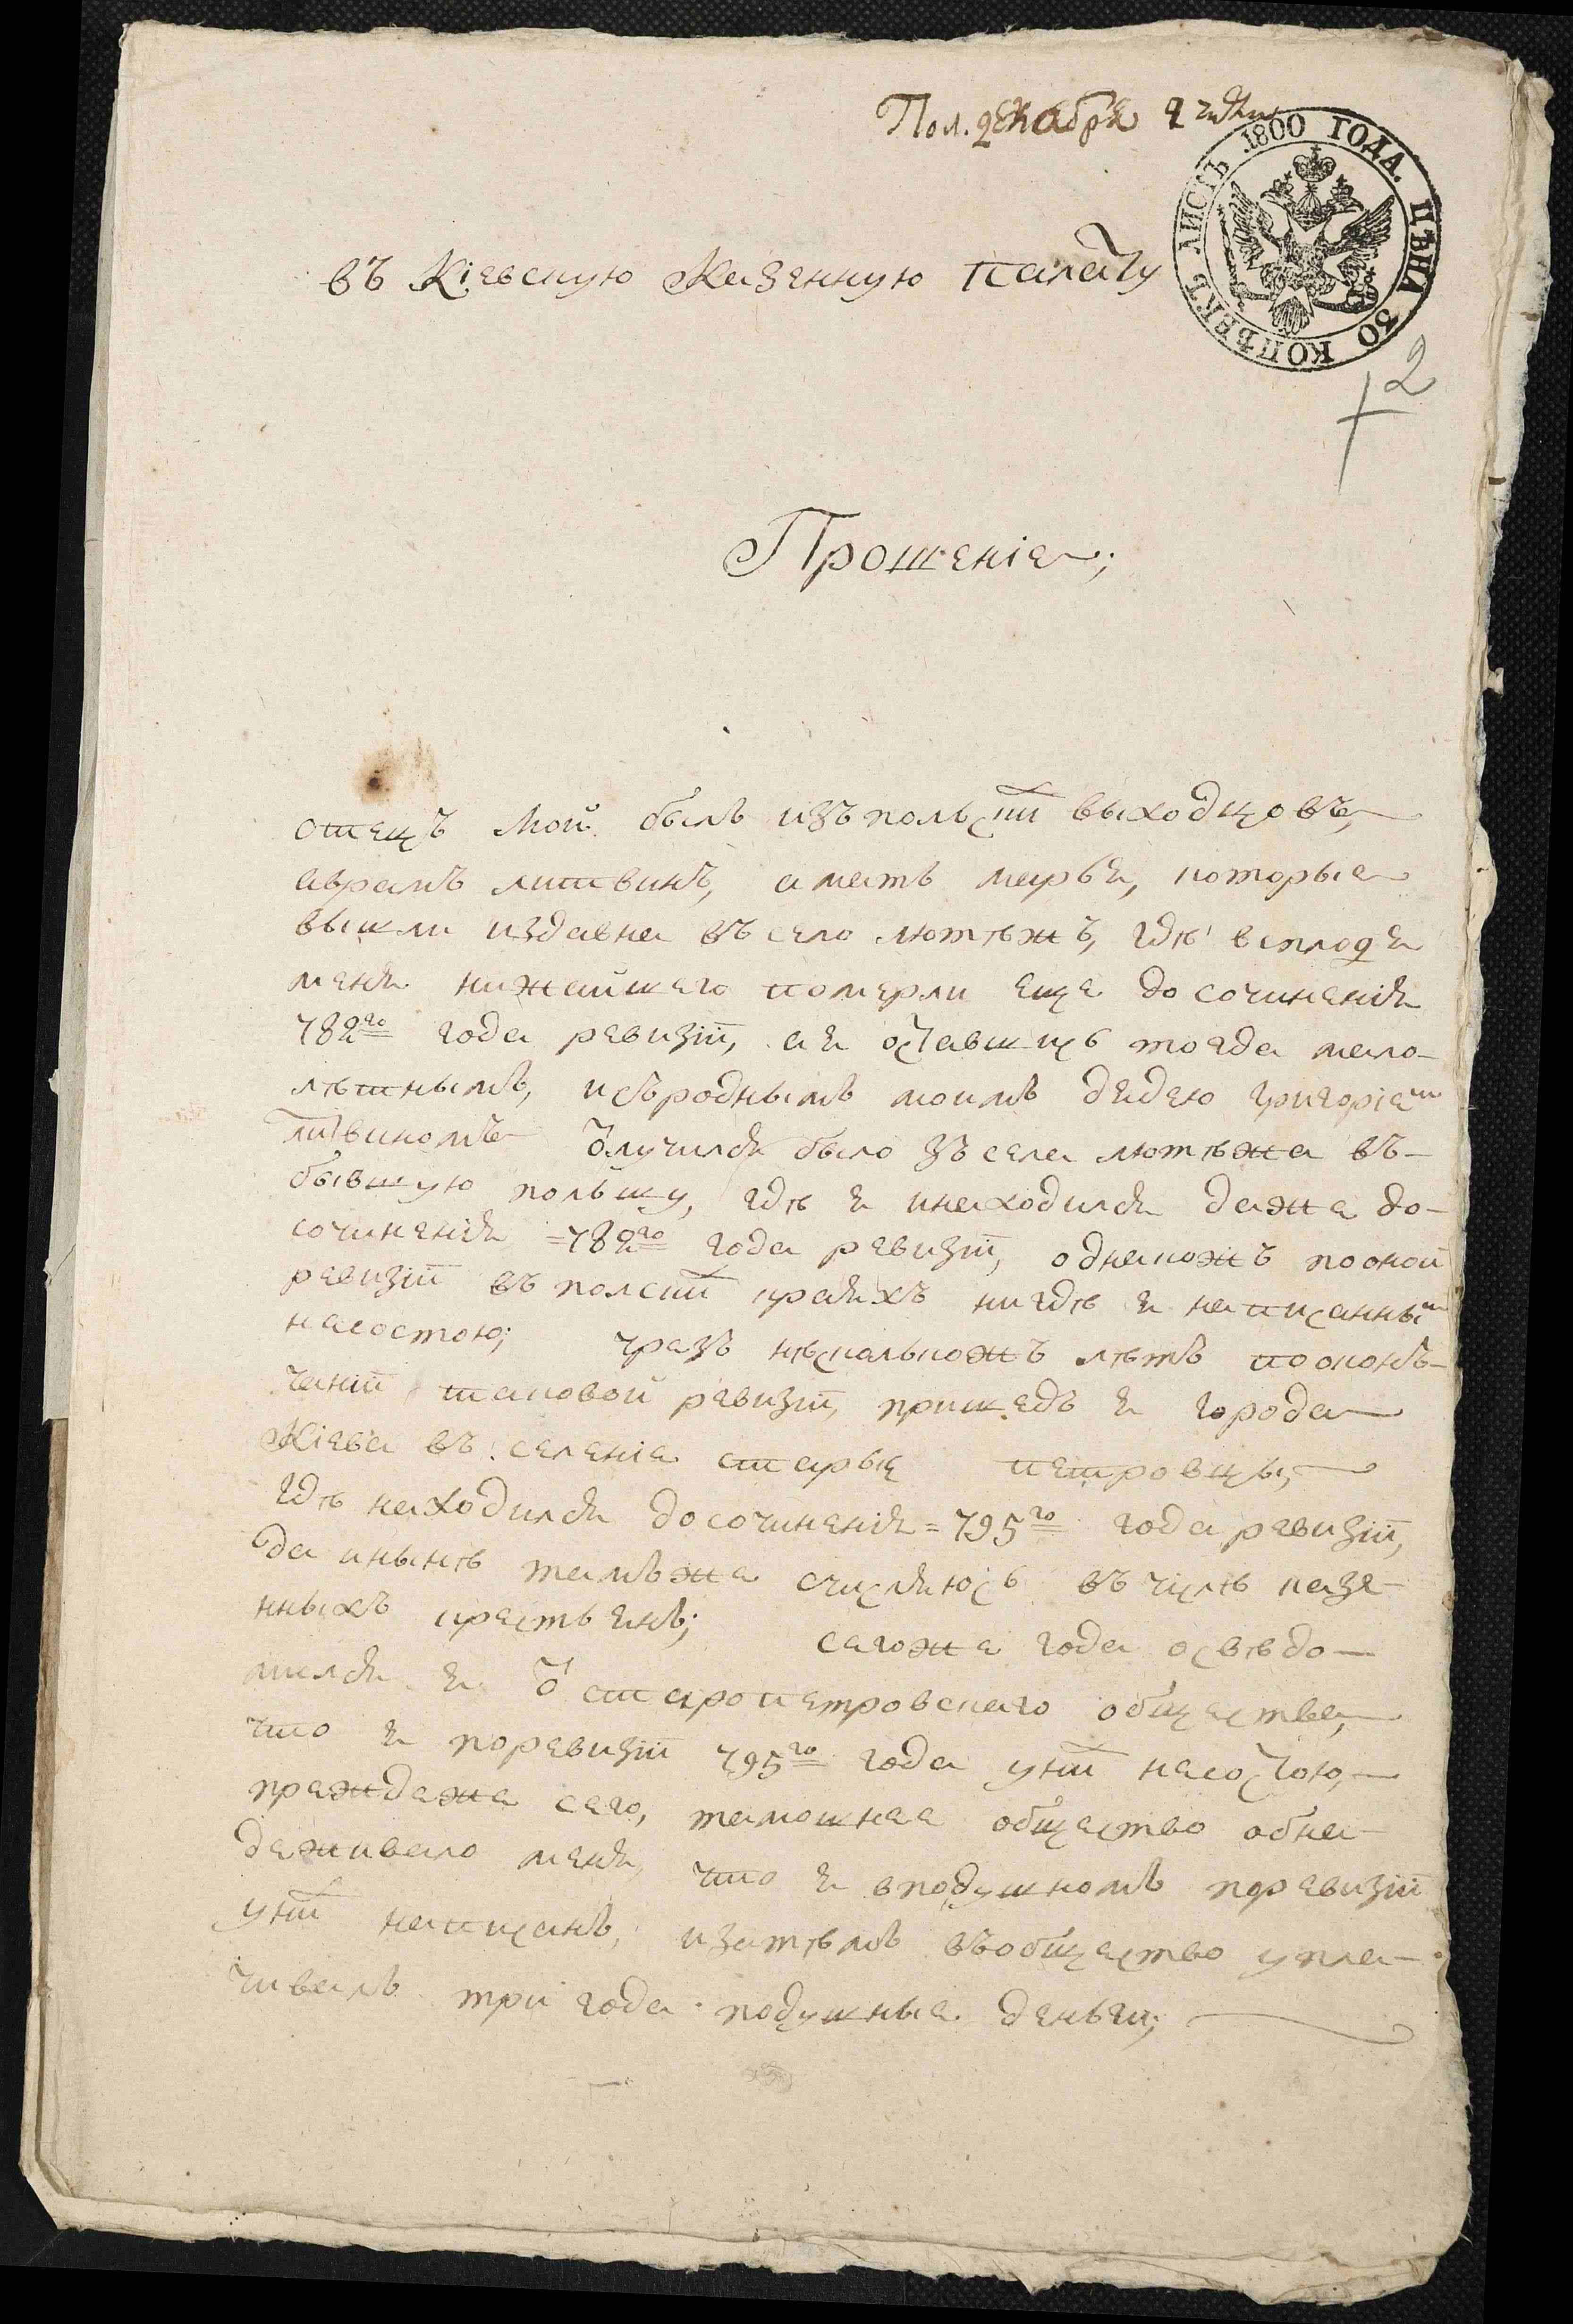 Пол. декабря 2 дня
1800 ГОДА. ЦѢНА 30 КОПѢЕКЪ ЛИСТЪ
въ Кіевскую Казенную палату
2
Прошеніе;
отецъ мой былъ изъ полскихъ выходцовъ,
аврамъ литвинъ, а мать марья, которые
вышли издавна въ село лютѣжъ, гдѣ всплодя
меня нижайшего померли еще до сочиненія
782го года ревизіи, а я оставшись тогда мало-
лѣтнымъ, исъроднымъ моимъ дядею григоріем
литвиномъ отлучился было зъ села лютѣжа въ-
бывшую польшу, гдѣ я инаходился даже до-
сочиненія =782го года ревизіи, однакожъ поонои
ревизіи въ полскихъ краяхъ нигдѣ я написанным
несостою; чрезъ нѣсколькожъ лѣтъ пооконъ-
чаніи таковой ревизіи, пришедъ я города
Кіева въ селеніе старые петровцы,
гдѣ находился досочиненія =795го года ревизіи,
да инынѣ тамъже счисляюсь въ числѣ казе-
нныхъ крестьянъ; сегоже года освѣдо-
мился я от старопетровского общества,
что я поревизіи 795го года унихъ несостою,
преждеже сего, тамошнее общество обна-
деживало меня, что я вподушномъ поревизіи
унихъ написанъ, изатѣмъ въобщество упла-
чивалъ три года подушные деньги;